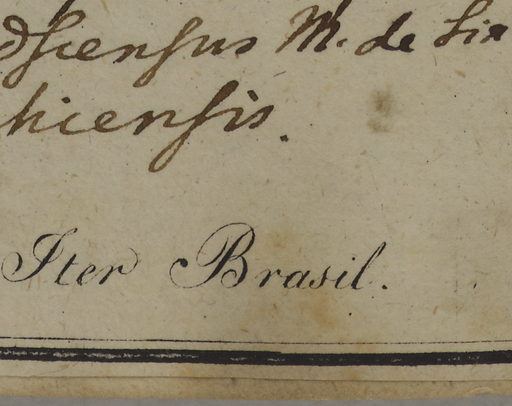 adscensus M. de Lin
hiensis.
Iter Brasil.